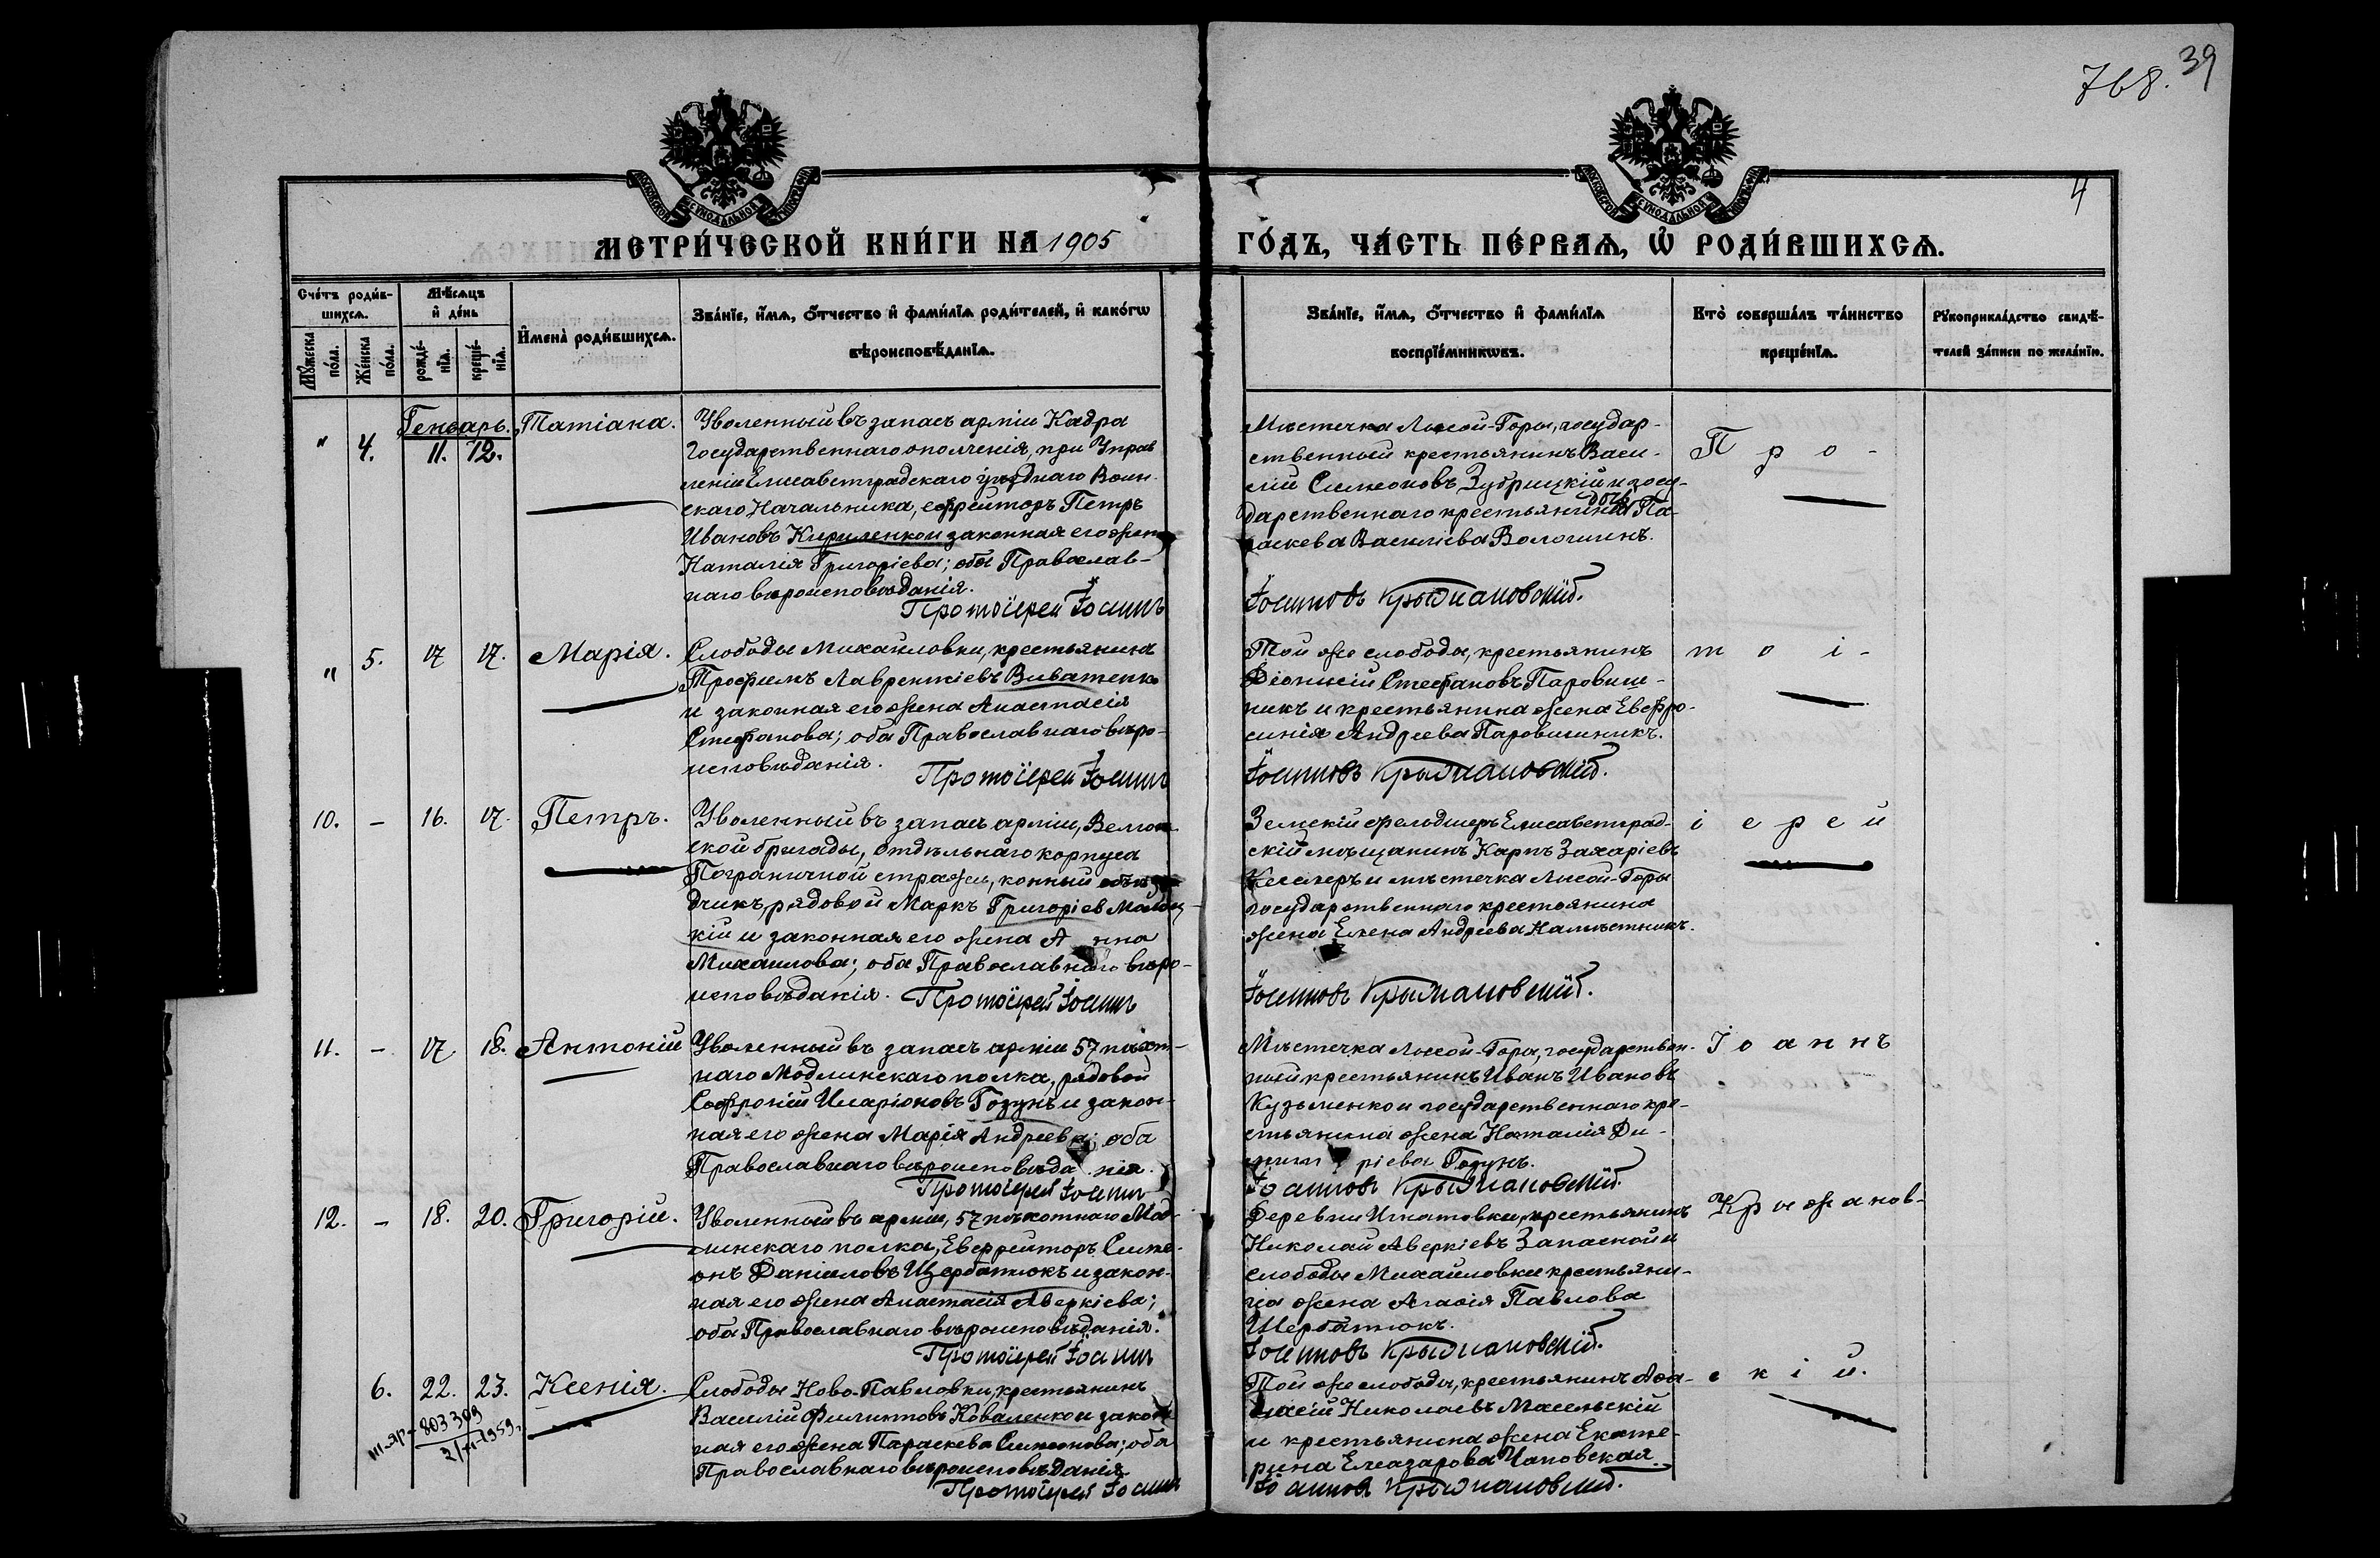 768. 39
4
МОСКОВСКОЙ СѴНОДАЛЬНОЙ ТИПОГРАФІИ
МОСКОВСКОЙ СѴНОДАЛЬНОЙ ТИПОГРАФІИ
МЕТРИ́ЧЕСКОЙ КНИ́ГИ НА 1905 ГО́ДЪ, ЧА́СТЬ ПЕ́РВАѦ, Ѡ҆ РОДИ́ВШИХСѦ.
Сче́тъ роди́в-
шихсѧ.
Мꙋ́жеска по́ла.
Же́нска по́ла.
Мѣ́сѧцъ
и҆ де́нь
рожде́-
нїѧ.
креще́-
нїѧ.
И҆мена̀ роди́вшихсѧ.
Зва́нїе, и҆́мѧ, о҆́тчество и҆ фами́лїѧ роди́телей, и҆ како́гѡ
вѣроисповѣ́данїѧ.
Зва́нїе, и҆́мѧ, о҆́тчество и҆ фами́лїѧ
воспрїе́мникѡвъ.
Кто̀ соверша́лъ та́инство
креще́нїѧ.
Рꙋкоприкла́дство свидѣ́-
телей за́писи по жела́нїю.
Генварь.
" 4. 11. 12. Татіана.
Уволенный въ запасъ арміи Кадра
Государственнаго ополченія, при Управ
леніи Елисаветградскаго уѣзднаго Воин-
скаго Начальника, ефрейторъ Петръ
Ивановъ Кириленко и законная его жена
Наталія Григоріева; оба Православ-
наго вѣроисповѣданія.
Протоіерей Іоаннъ
Мѣстечка Лысой-Горы, государ-
ственный крестьянинъ Васи-
лій Симеоновъ Зубрицкій и госу-
дарственнаго крестьянина дочь Па-
раскева Василіева Волошинъ.
Іоанновъ Крыжановскій.
П р о -
" 5. 17 17. Марія.
Слободы Михайловки, крестьянинъ
Трофимъ Лаврентіевъ Виватенко
и законная его жена Анастасія
Стефанова; оба Православнаго вѣро-
исповѣданія.
Протоіерей Іоаннъ
Той же слободы, крестьянинъ
Діонисій Стефановъ Паровиш-
никъ и крестьянина жена Евфро-
синія Андреева Паровишникъ.
Іоанновъ Крыжановскій.
т о і -
10. - 16. 17. Петръ.
Уволенный въ запасъ арміи,
ской бригады, отдѣльнаго корпуса
Пограничной стражи, конный объѣз
дчикъ, рядовой Маркъ Григоріев
кій и законная его жена Анна
Михаилова; оба Православнаго вѣро-
исповѣданія. Протоіерей Іоаннъ
Земскій фельдшеръ Елисаветград-
скій мѣщанинъ Карпъ Захаріевъ
Кесслеръ и мѣстечка Лысой-Горы
государственнаго крестьянина
жена Елена Андреева Намѣстникъ.
Іоанновъ Крыжановскій.
і е р е й
11. - 17 18. Антоній
Уволенный въ запасъ арміи 57 пѣхот-
наго Модлинскаго полка, рядовой
Софроній Иларіоновъ Гозунъ и закон-
ная его жена Марія Андреева; оба
Православнаго вѣроисповѣданія.
Протоіерей Іоаннъ
Мѣстечка Лысой-Горы, государствен-
ный крестьянинъ Иванъ Ивановъ
Кузьменко и государственнаго кре-
стьянина жена Наталія Ди-
митріева Гозунъ.
Іоанновъ Крыжановскій.
І о а н н ъ
12. - 18. 20. Григорій.
Уволенный въ арміи, 57 пѣхотнаго Мод-
линскаго полка, Евфрейторъ Симе-
онъ Даніиловъ Щербатюкъ и закон-
ная его жена Анастасія Аверкіева;
оба Православнаго вѣроисповѣданія.
Протоіерей Іоаннъ
Деревни Игнатовки, крестьянинъ
Николай Аверкіевъ Запасной и
слободы Михайловки крестьяни-
на жена Агафія Павлова
Щербатюкъ.
Іоанновъ Крыжановскій.
К р ы ж а н о в -
6. 22. 23. Ксенія.
803309
2/XI-1959г.
Слободы Ново-Павловки, крестьянинъ
Василій Филипповъ Коваленко и закон
ная его жена Параскева Симеонова; оба
Православнаго вѣроисповѣданія.
Протоіерей Іоаннъ
Той же слободы, крестьянинъ Афа-
насій Николаевъ Масельскій
и крестьянина жена Екате-
рина Елеазарова Чаповская.
Іоанновъ Крыжановскій.
с к і й.